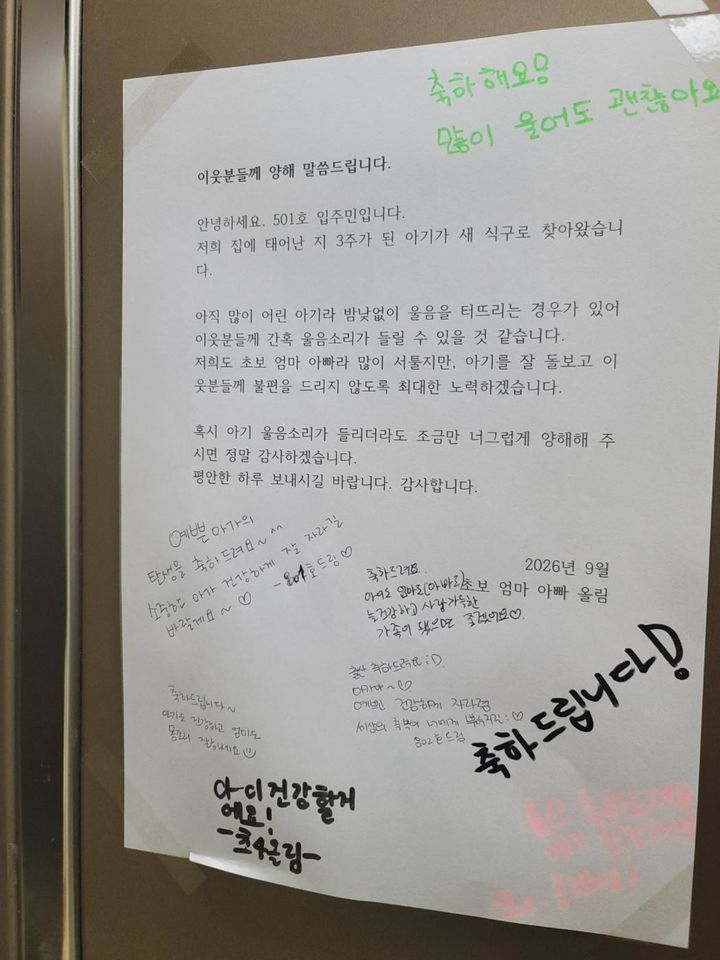 축하해요!
많이 울어도 괜찮아요
이웃분들께 양해 말씀드립니다.
안녕하세요. 501호 입주민입니다.
저희 집에 태어난 지 3주가 된 아기가 새 식구로 찾아왔습니
다.
아직 많이 어린 아기라 밤낮없이 울음을 터뜨리는 경우가 있어
이웃분들께 간혹 울음소리가 들릴 수 있을 것 같습니다.
저희도 초보 엄마 아빠라 많이 서툴지만, 아기를 잘 돌보고 이
웃분들께 불편을 드리지 않도록 최대한 노력하겠습니다.
혹시 아기 울음소리가 들리더라도 조금만 너그럽게 양해해 주
시면 정말 감사하겠습니다.
평안한 하루 보내시길 바랍니다. 감사합니다.
2026년 9월
초보 엄마 아빠 올림
예쁜 아가의
탄생을 축하드려요~^^
소중한 아가 건강하게 잘 자라길
바랄게요~♡
드림♡
축하드려요
아이도 엄마도(아빠도)
늘 건강하고 사랑가득한
가족이 됐으면 좋겠어요♡
출산 축하드려요 :D
아가야~♡
예쁘게 건강하게 자라렴
세상의 축복이 너에게
드림
축하드립니다~
아가도 건강하고 엄마도
몸조리 잘하세요
축하드립니다!
건강할거
에요!
-초4올림-